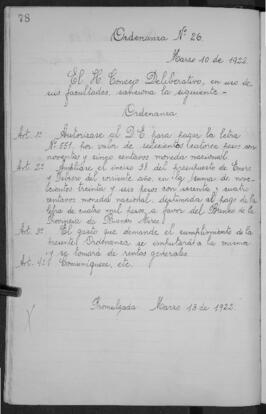 78
Ordenanza Nº 26.
Marzo 10 de 1922.
El H. Concejo Deliberativo, en uso de
sus facultades, sanciona la siguiente -
Ordenanza
Art. 1º Autorízase al D. E. para pagar la letra
Nº 551, por valor de seiscientos catorce pesos con
noventa y cinco centavos moneda nacional.
Art. 2º Amplíase el inciso 38 del presupuesto de Enero
y Febrero del corriente año, en la suma de nove-
cientos treinta y seis pesos con sesenta y cuatro
centavos moneda nacional, destinada al pago de la
letra de cuatro mil pesos a favor del Banco de la
Provincia de Buenos Aires.
Art. 3º El gasto que demande el cumplimiento de la
presente Ordenanza se imputará a la misma
y se tomará de rentas generales.
Art. 4º Comuníquese, etc.
Promulgada Marzo 13 de 1922.